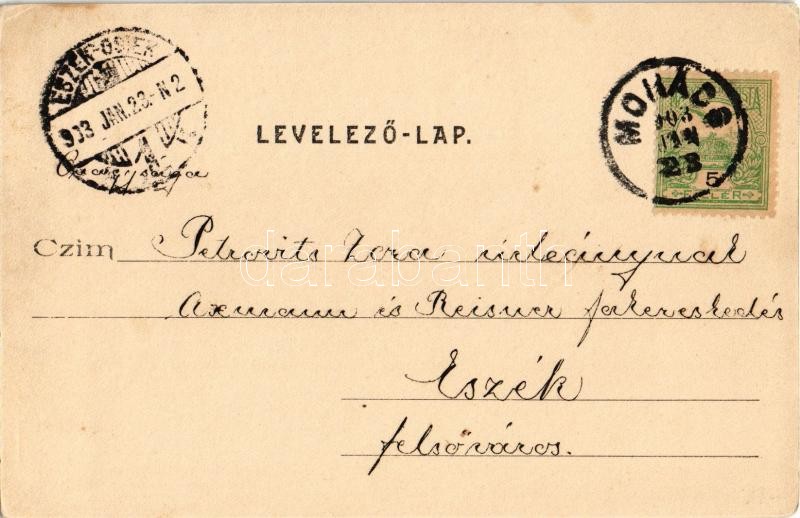 ESZÉK-OSIEK
903 JAN. 23.-N 2
LEVELEZŐ-LAP.
MOHÁCS
903
JAN
23
5
Czim Petrovits Zora úrleánynak
Axmann és Reisner fakereskedés
Eszék
felsőváros.
darabanth